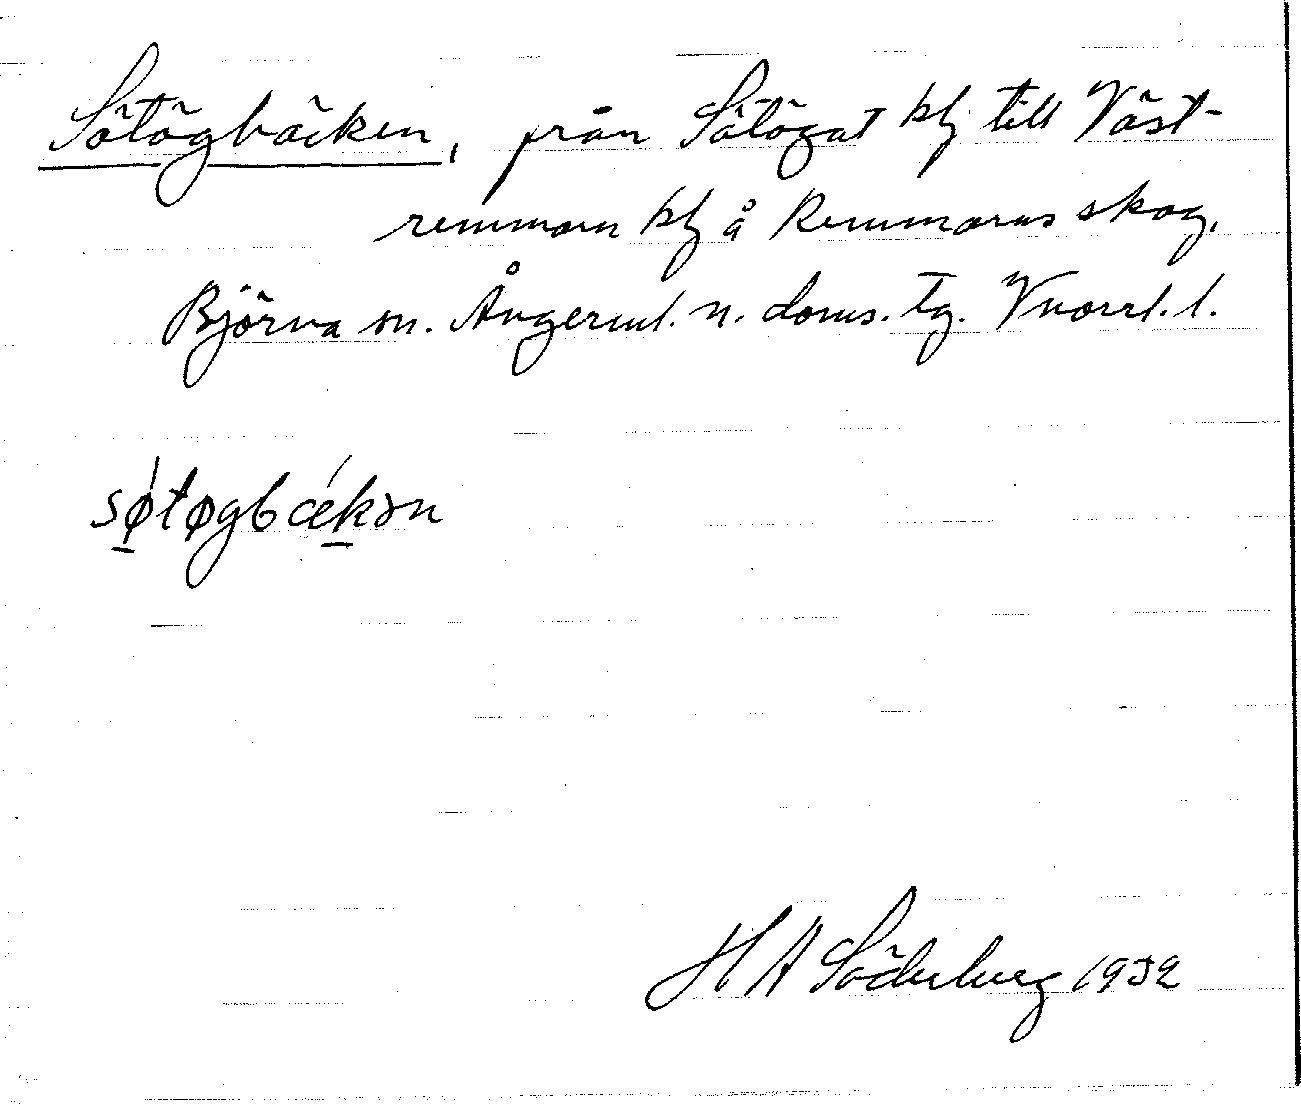 Sötögbäcken, från Sötögat blj till Väst-
remmarn blj å Remmarns skog,
Björna sn. Ångerml. n. doms. tg. Vnorrl. l.
søtøgbækən
H A Söderberg 1932